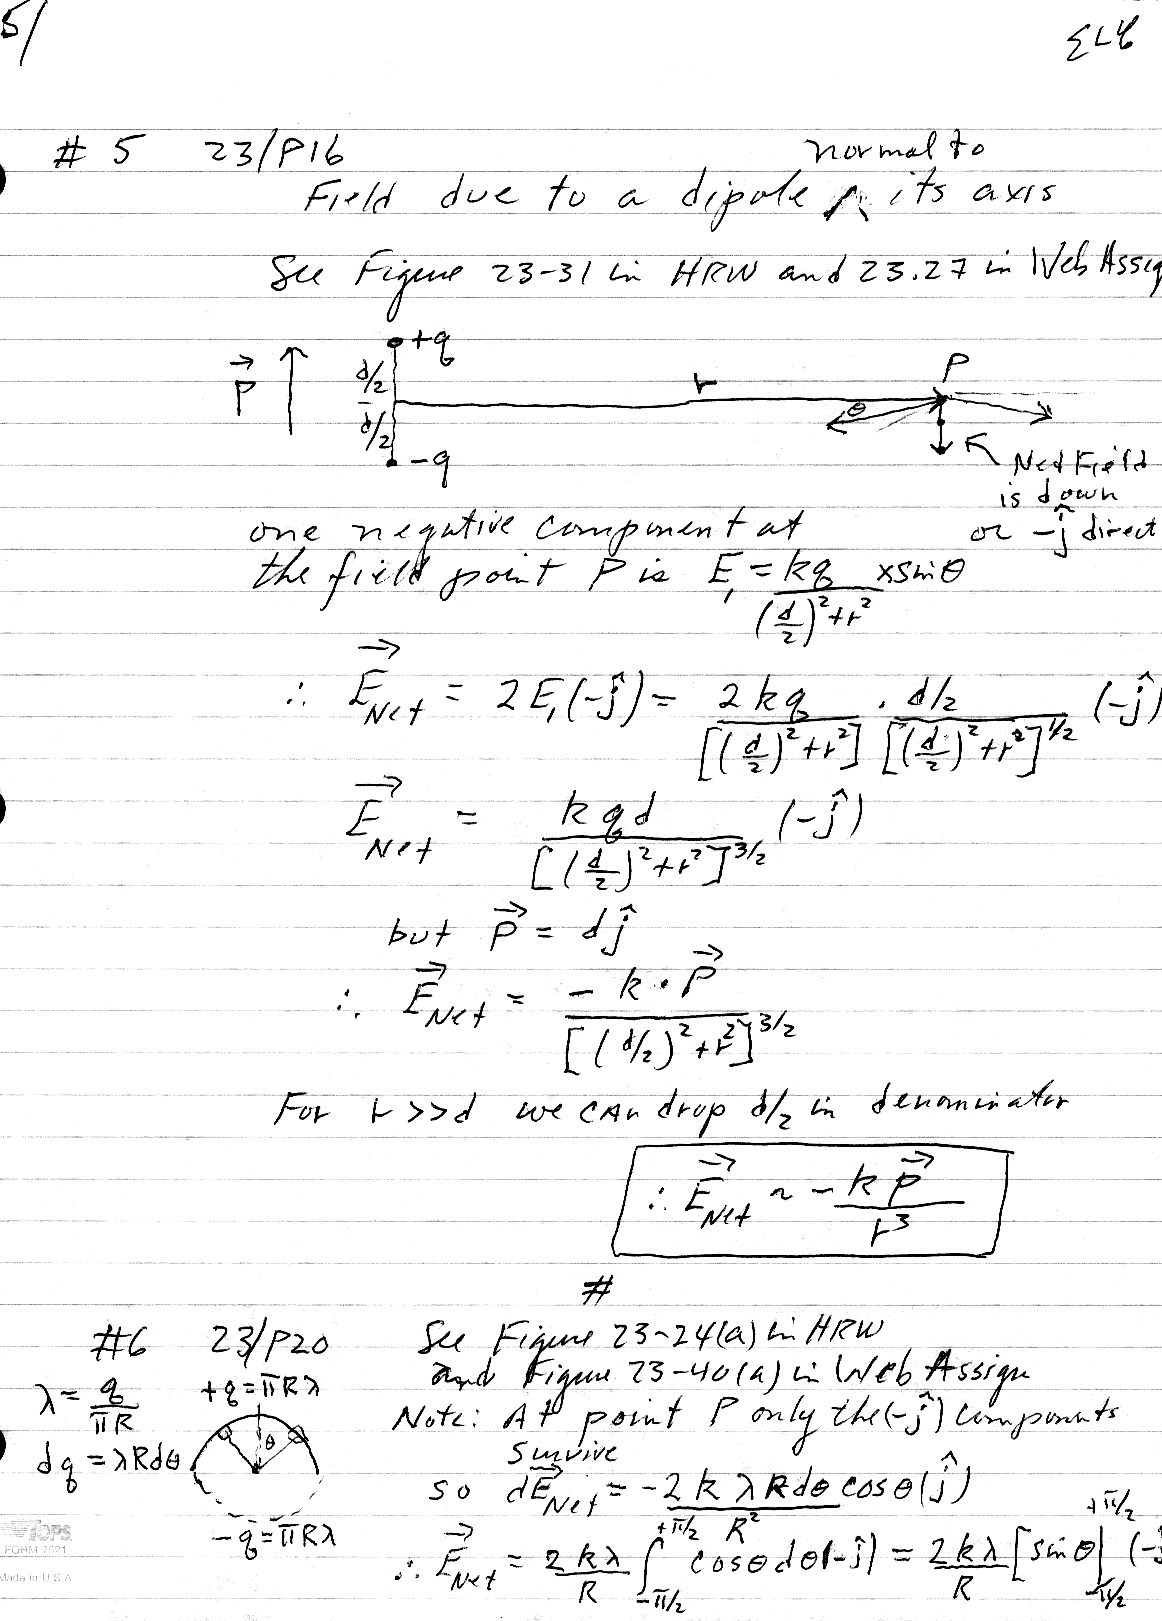 5/
# 5 23/P16 normal to
Field due to a dipole ∧ its axis
See Figure 23-31 in HRW and 23.27 in Web Assig
+q
P⃗ d/2 r P
d/2 θ
-q
Net Field
is down
or -ĵ direct
one negative component at
the field point P is E₁ = kq/((d/2)²+r²) x sinθ
∴ E⃗Net = 2E₁(-ĵ) = 2kq/[(d/2)²+r²] · d/2/[(d/2)²+r²]^1/2 (-ĵ)
E⃗Net = kqd/[(d/2)²+r²]^3/2 (-ĵ)
but P⃗ = dĵ
∴ E⃗Net = -k·P⃗/[(d/2)²+r²]^3/2
For r >> d we can drop d/2 in denominator
∴ E⃗Net ~ -kP⃗/r³
#
#6 23/P20 See Figure 23-24(a) in HRW
and Figure 23-40(a) in Web Assign
λ = q/πR +q = πRλ Note: At point P only the (-ĵ) components
survive
dq = λRdθ θ so dE⃗Net = -2kλRdθ/R² cosθ(ĵ)
-q = πRλ
∴ E⃗Net = 2kλ/R ∫_-π/2^+π/2 cosθdθ(-ĵ) = 2kλ/R [sinθ|_-π/2^+π/2 (-ĵ
TOPS
FORM 7521
Made in U.S.A